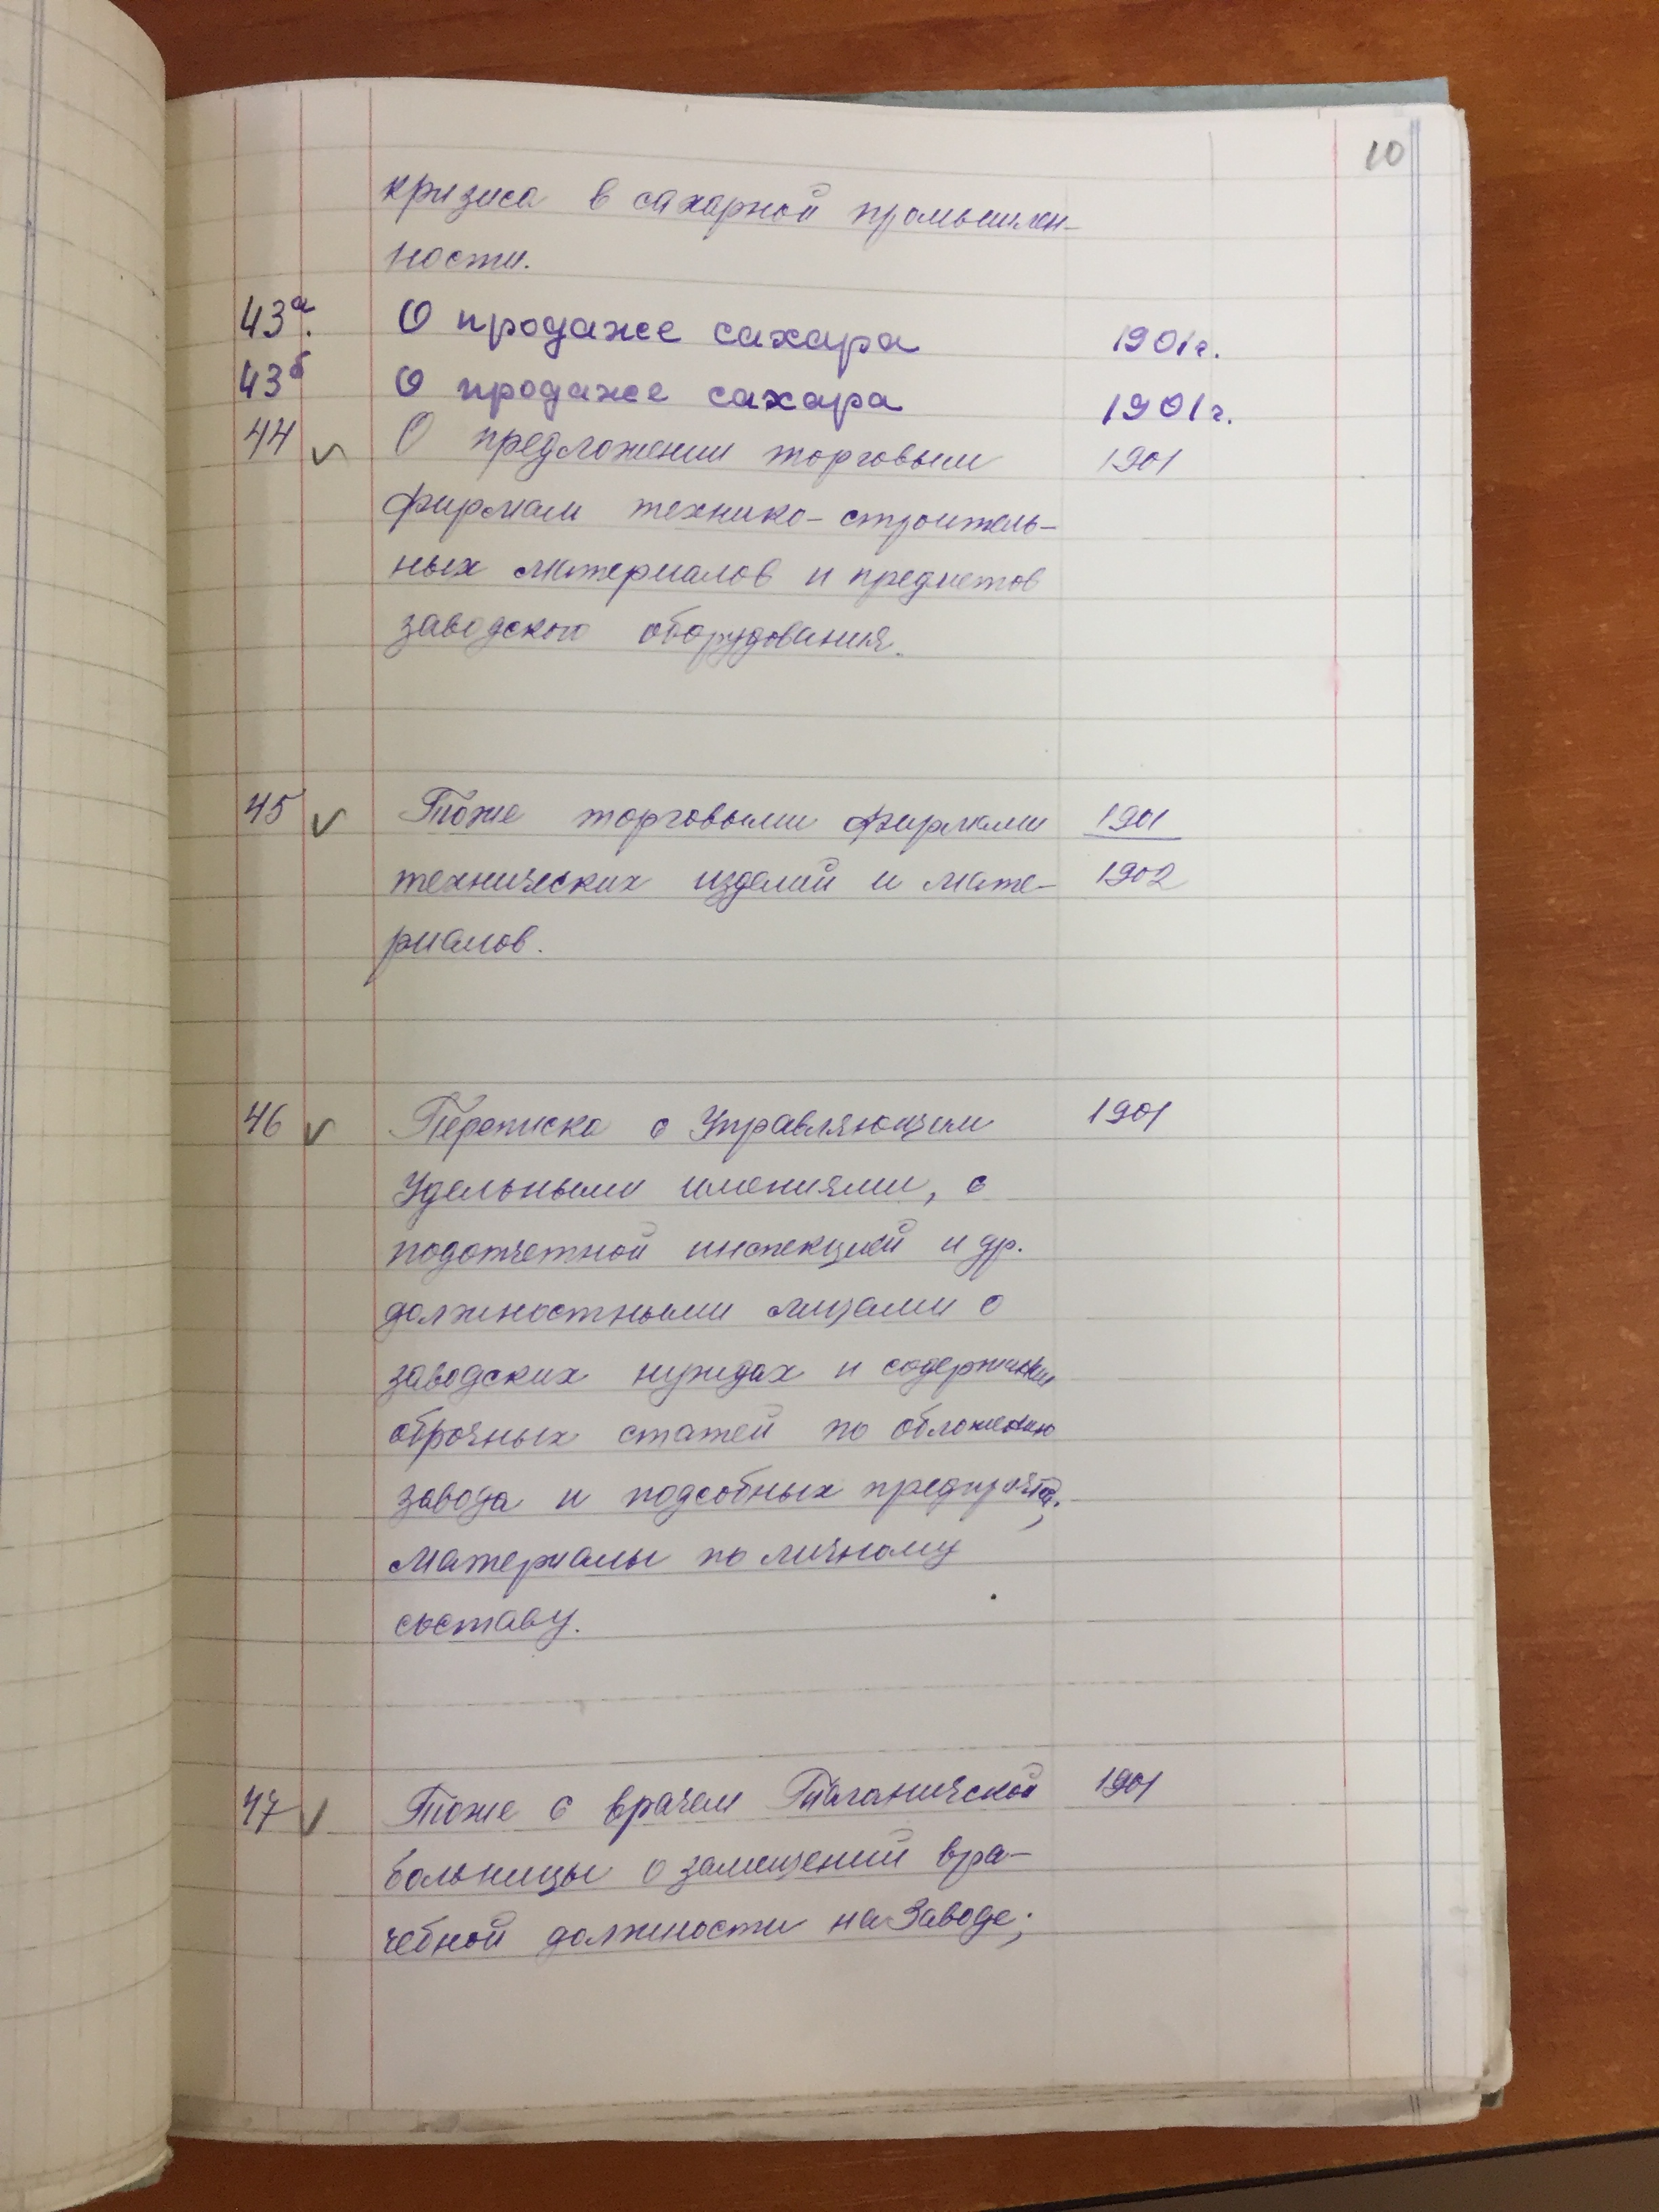 10
кризиса в сахарной промышлен-
ности.
43а. О продаже сахара 1901г.
43б О продаже сахара 1901г.
44 О предложении торговым 1901
фирмам технико-строитель-
ных материалов и предметов
заводского оборудования.
45 Тоже торговыми фирмами 1901
технических изделий и мате- 1902
риалов.
46 Переписка с Управляющим 1901
Удельными имениями, с
податной инспекцией и др.
должностными лицами о
заводских нуждах и содержании
оброчных статей по обложению
завода и подсобных предприятий;
материалы по личному
составу.
47 Тоже с врачем Таганической 1901
больницы о замещений вра-
чебной должности на Заводе;